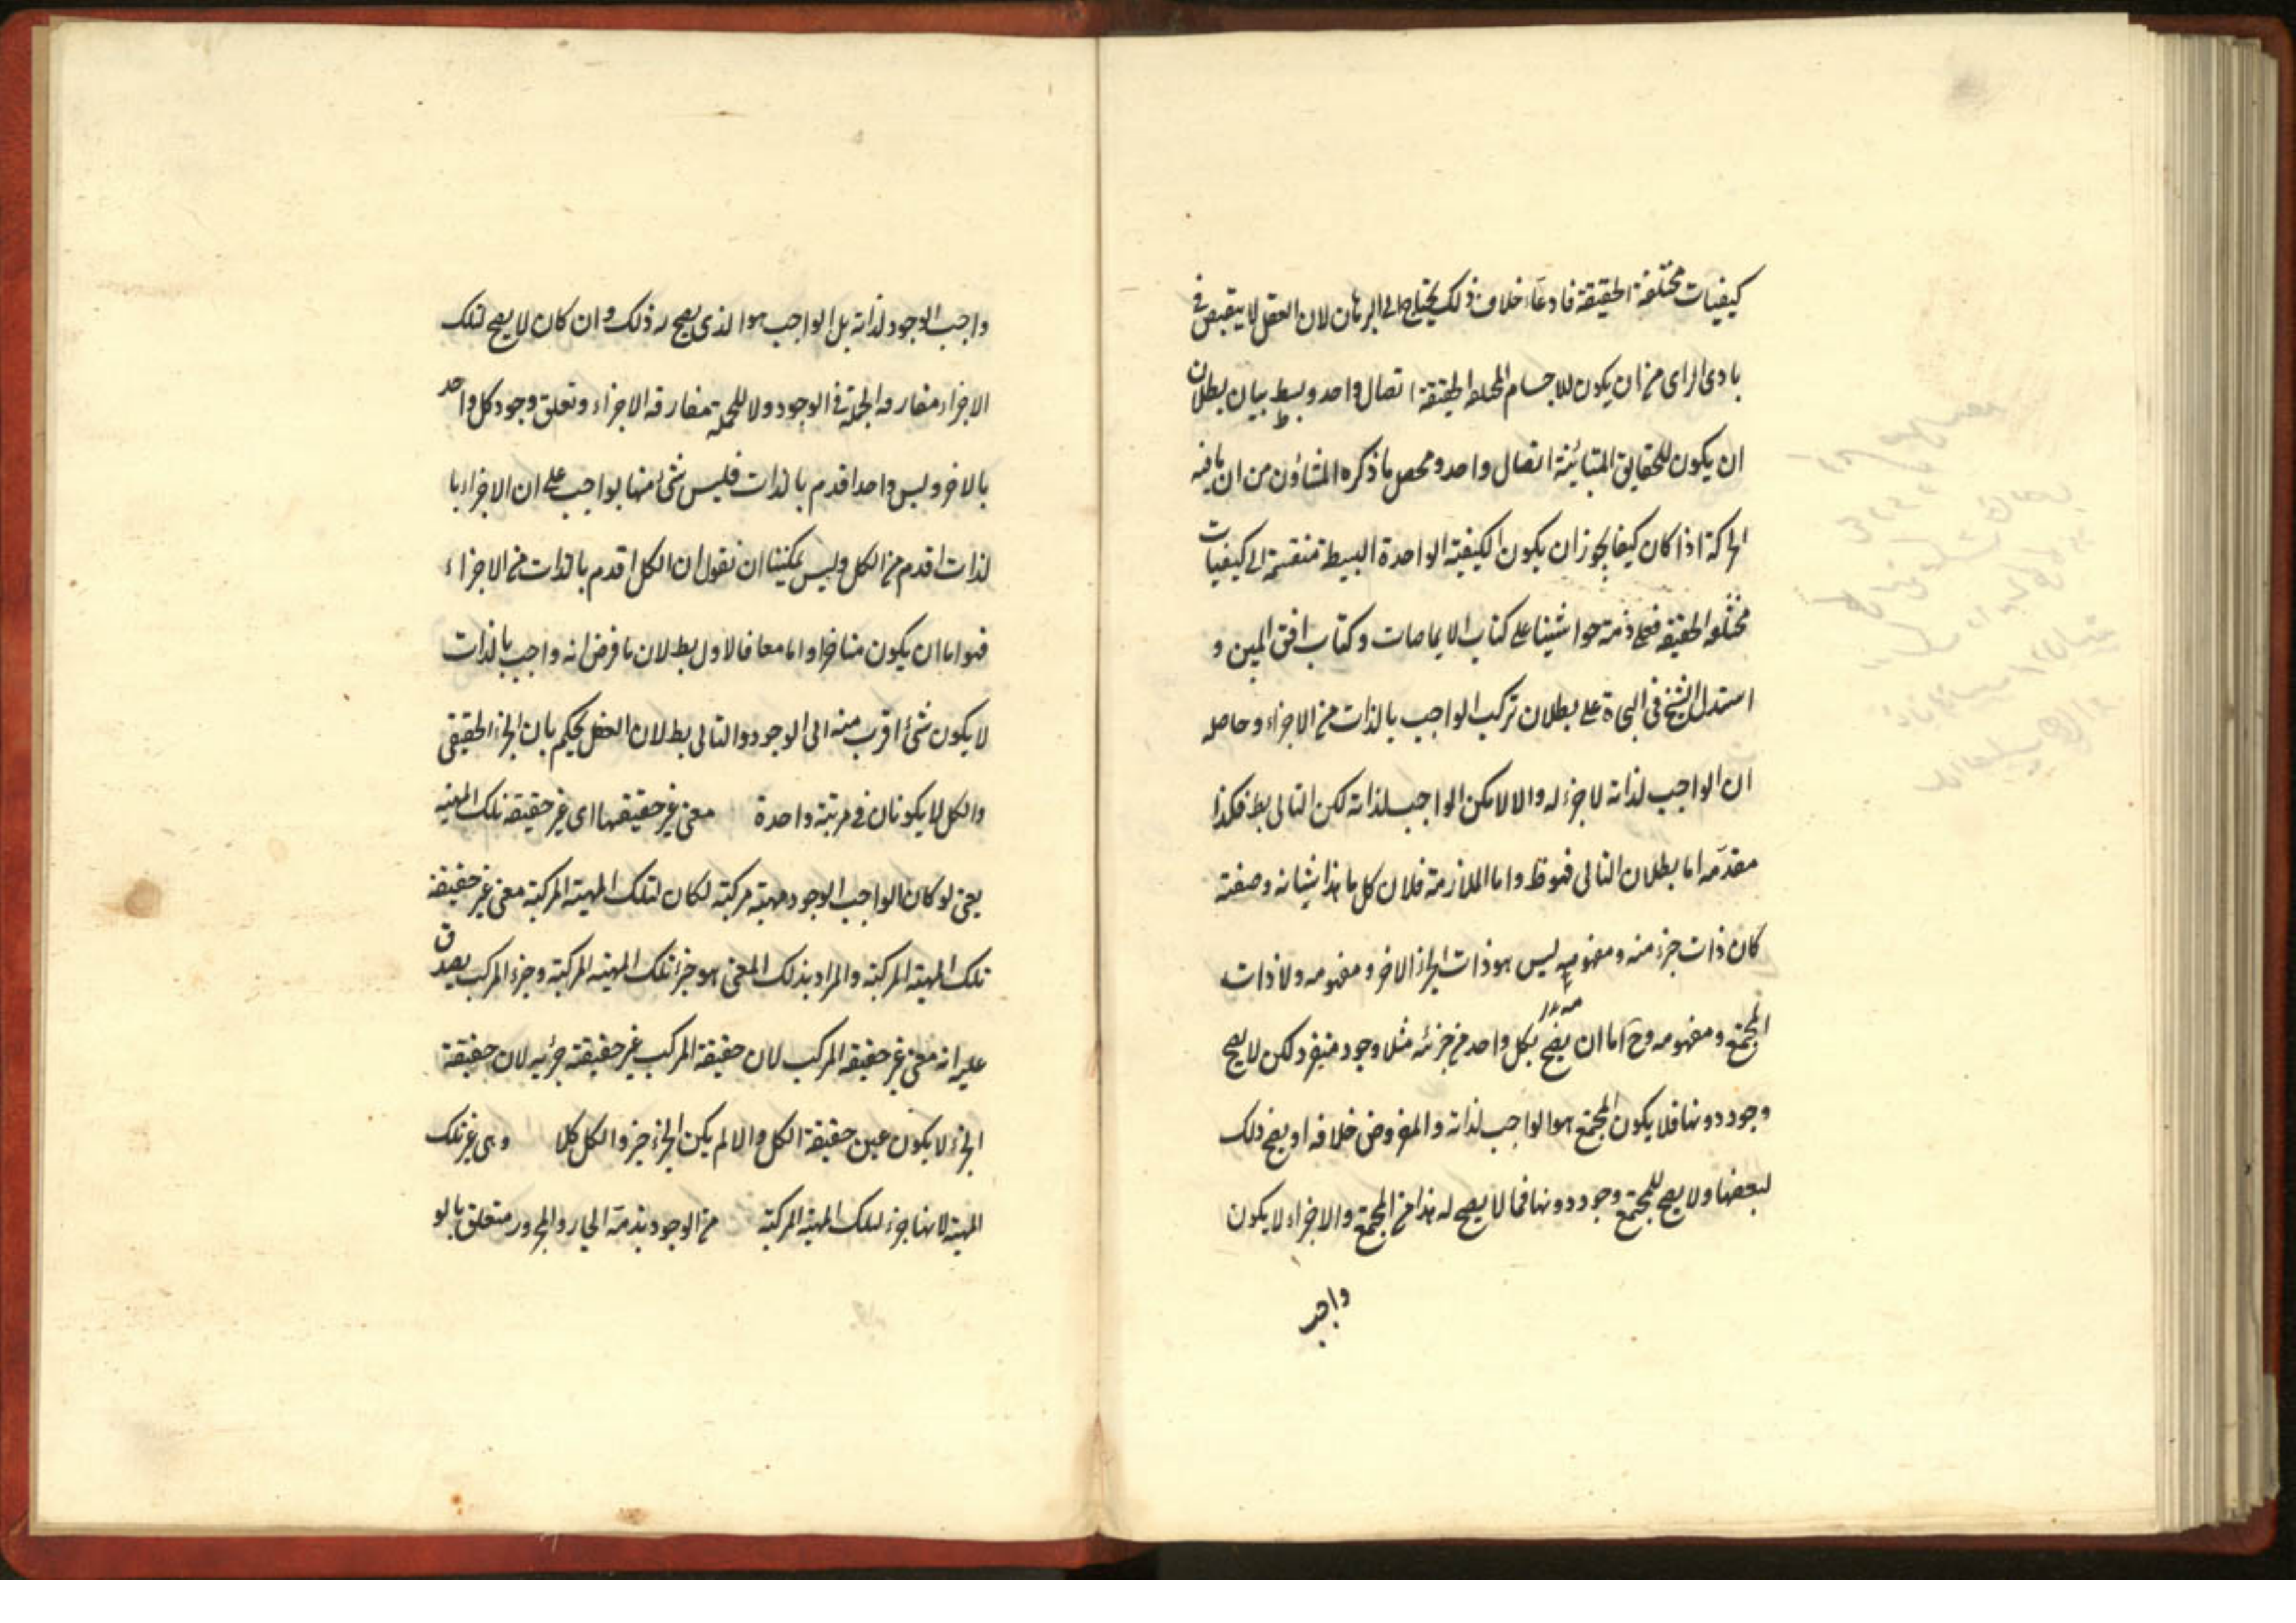 كيفيات مختلفة الحقيقة فادعاء خلاف ذلك يحتاج الى البرهان لان العقل لا ينقبض فى
بادى الراى من ان يكون للاجسام المختلفة الحقيقة اتصال واحد وبسط بيان بطلان
ان يكون للحقايق المتبائنة اتصال واحد ومحصل ما ذكره المشاؤن من ان ما فيه
الحركة اذا كان كيفا يجوز ان يكون الكيفية الواحدة البسيطة منقسمة الى كيفيات
مختلفه الحقيقه فعلى ذمة حواشينا على كتاب الايماضات وكتاب افق المبين و
استدل الشيخ فى النجاة على بطلان تركب الواجب بالذات من الاجزاء وحاصله
ان الواجب لذاته لا جزء له والا لا يكن الواجب لذاته لكن التالى بط فكذا
مقدمه اما بطلان التالى فهو ظ واما الملازمة فلان كل ما هذا شانه وصفته
كان ذات جزء منه ومفهومه ليس هو ذات الجزء الاخر ومفهومه ولا ذات
المجتمع ومفهومه وح اما ان يصح بكل واحد من جزئه مثلا وجود منفرد لكن لا يصح
وجود دونها فلا يكون المجتمع هو الواجب لذاته والمفروض خلافه او يصح ذلك
لبعضها ولا يصح للمجتمع وجود دونها فما لا يصح له هذا من المجتمع والاجزاء لا يكون
واجب
واجب الوجود لذاته بل الواجب هو الذى يصح له ذلك وان كان لا يصح لتلك
الاجزاء مفارقه الجملة فى الوجود ولا للجملة مفارقه الاجزاء وتعلق وجود كل واحد
بالاخر وليس واحد اقدم بالذات فليس شئ منها بواجب على ان الاجزاء با
لذات اقدم من الكل وليس يمكننا ان نقول ان الكل اقدم بالذات من الاجزاء
فهو اما ان يكون متاخرا واما معا فالاول بط لان ما فرض انه واجب بالذات
لا يكون شئ اقرب منه الى الوجود والتالى بط لان العقل يحكم بان الجزء الحقيقى
والكل لا يكونان فى مرتبة واحدة معنى غير حقيقتها اى غير حقيقة تلك المهيه
يعنى لو كان الواجب الوجود مهية مركبة لكان لتلك المهية المركبة معنى غير حقيقة
تلك المهية المركبة والمراد بذلك المعنى هو جزء تلك المهية المركبة وجزء المركب يصدق
عليه انه معنى غير حقيقة المركب لان حقيقة المركب غير حقيقة جزئيه لان حقيقة
الجزء لا يكون عين حقيقة الكل والا لم يكن الجزء جزء والكل كلا وهى غير تلك
المهية لانها جزء لتلك المهية المركبة من الوجود بذمة الجار والمجرور متعلق بالو